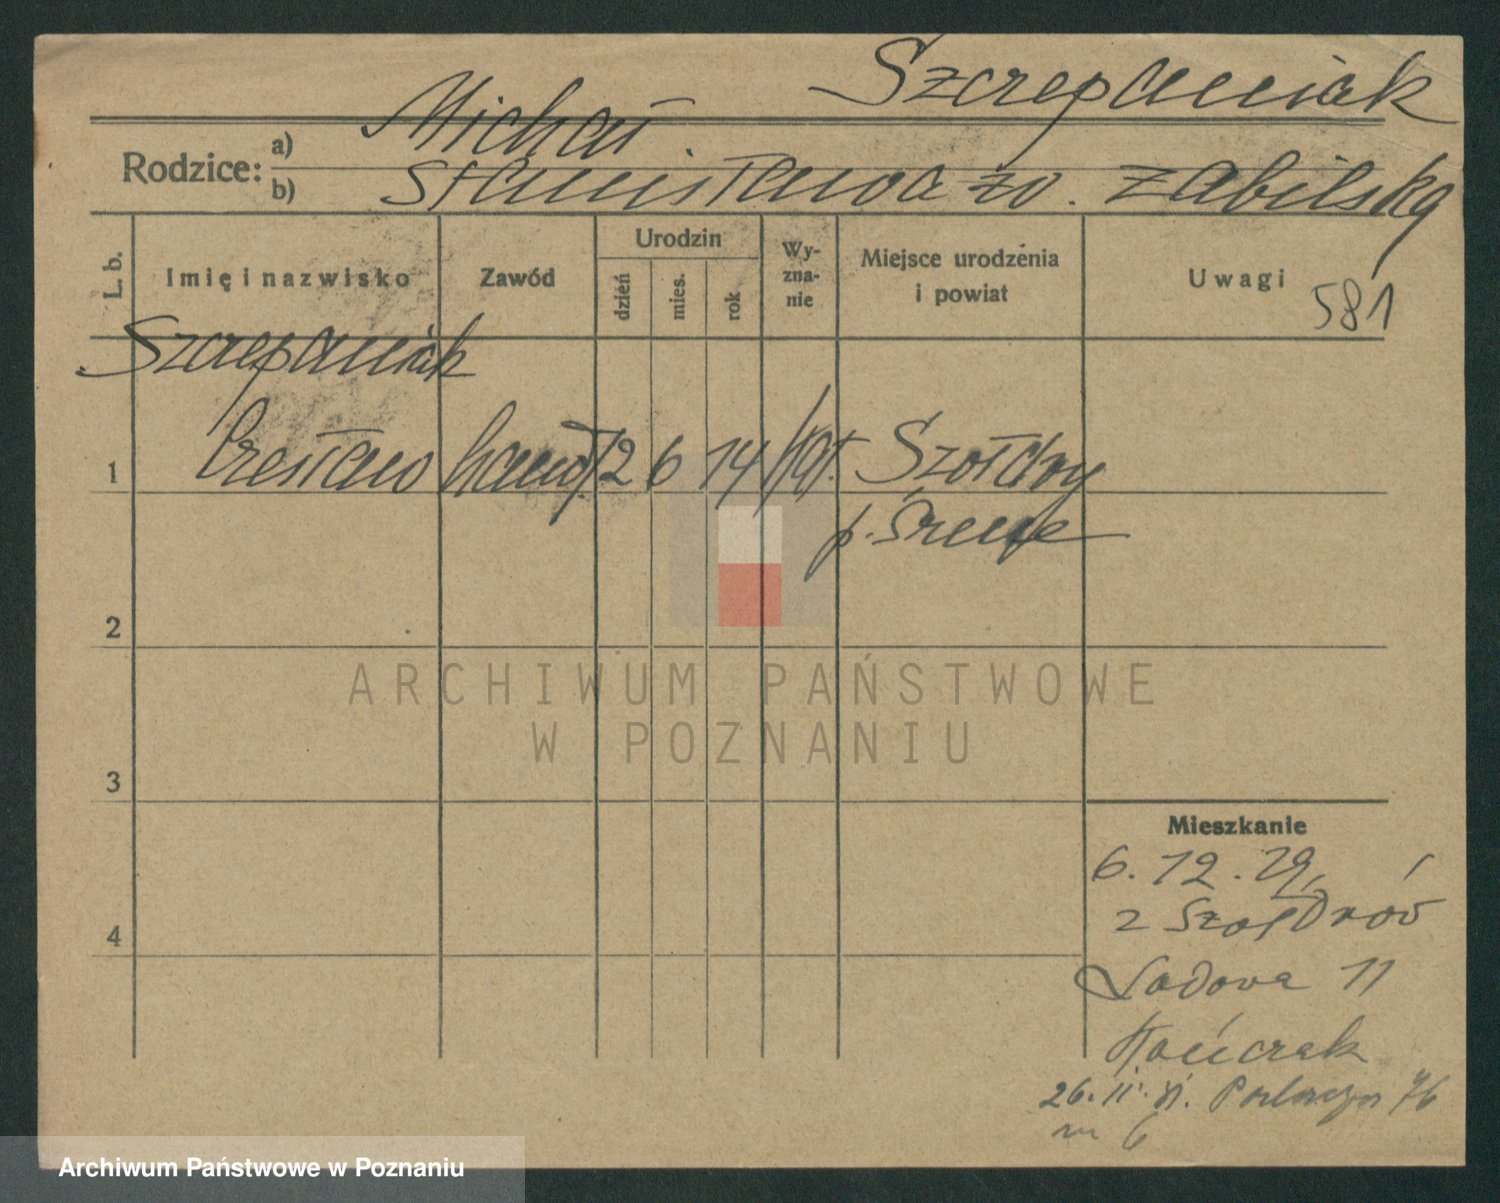 Szczepaniak
Rodzice: a) Michał
b) Stanisława zd. Zabilska
L. b.
Imię i nazwisko
Zawód
Urodzin
dzień
mies.
rok
Wy-
zna-
nie
Miejsce urodzenia
i powiat
Uwagi
581
Szczepaniak
1 Czesław hand. 12 6 14 kat. Szołdry
p. Śrem
2
3
4
Mieszkanie
6.12.29
z Szołdrów
Sadowa 11
Kończak
26.11.31. 76
m 6
ARCHIWUM PAŃSTWOWE
W POZNANIU
Archiwum Państwowe w Poznaniu